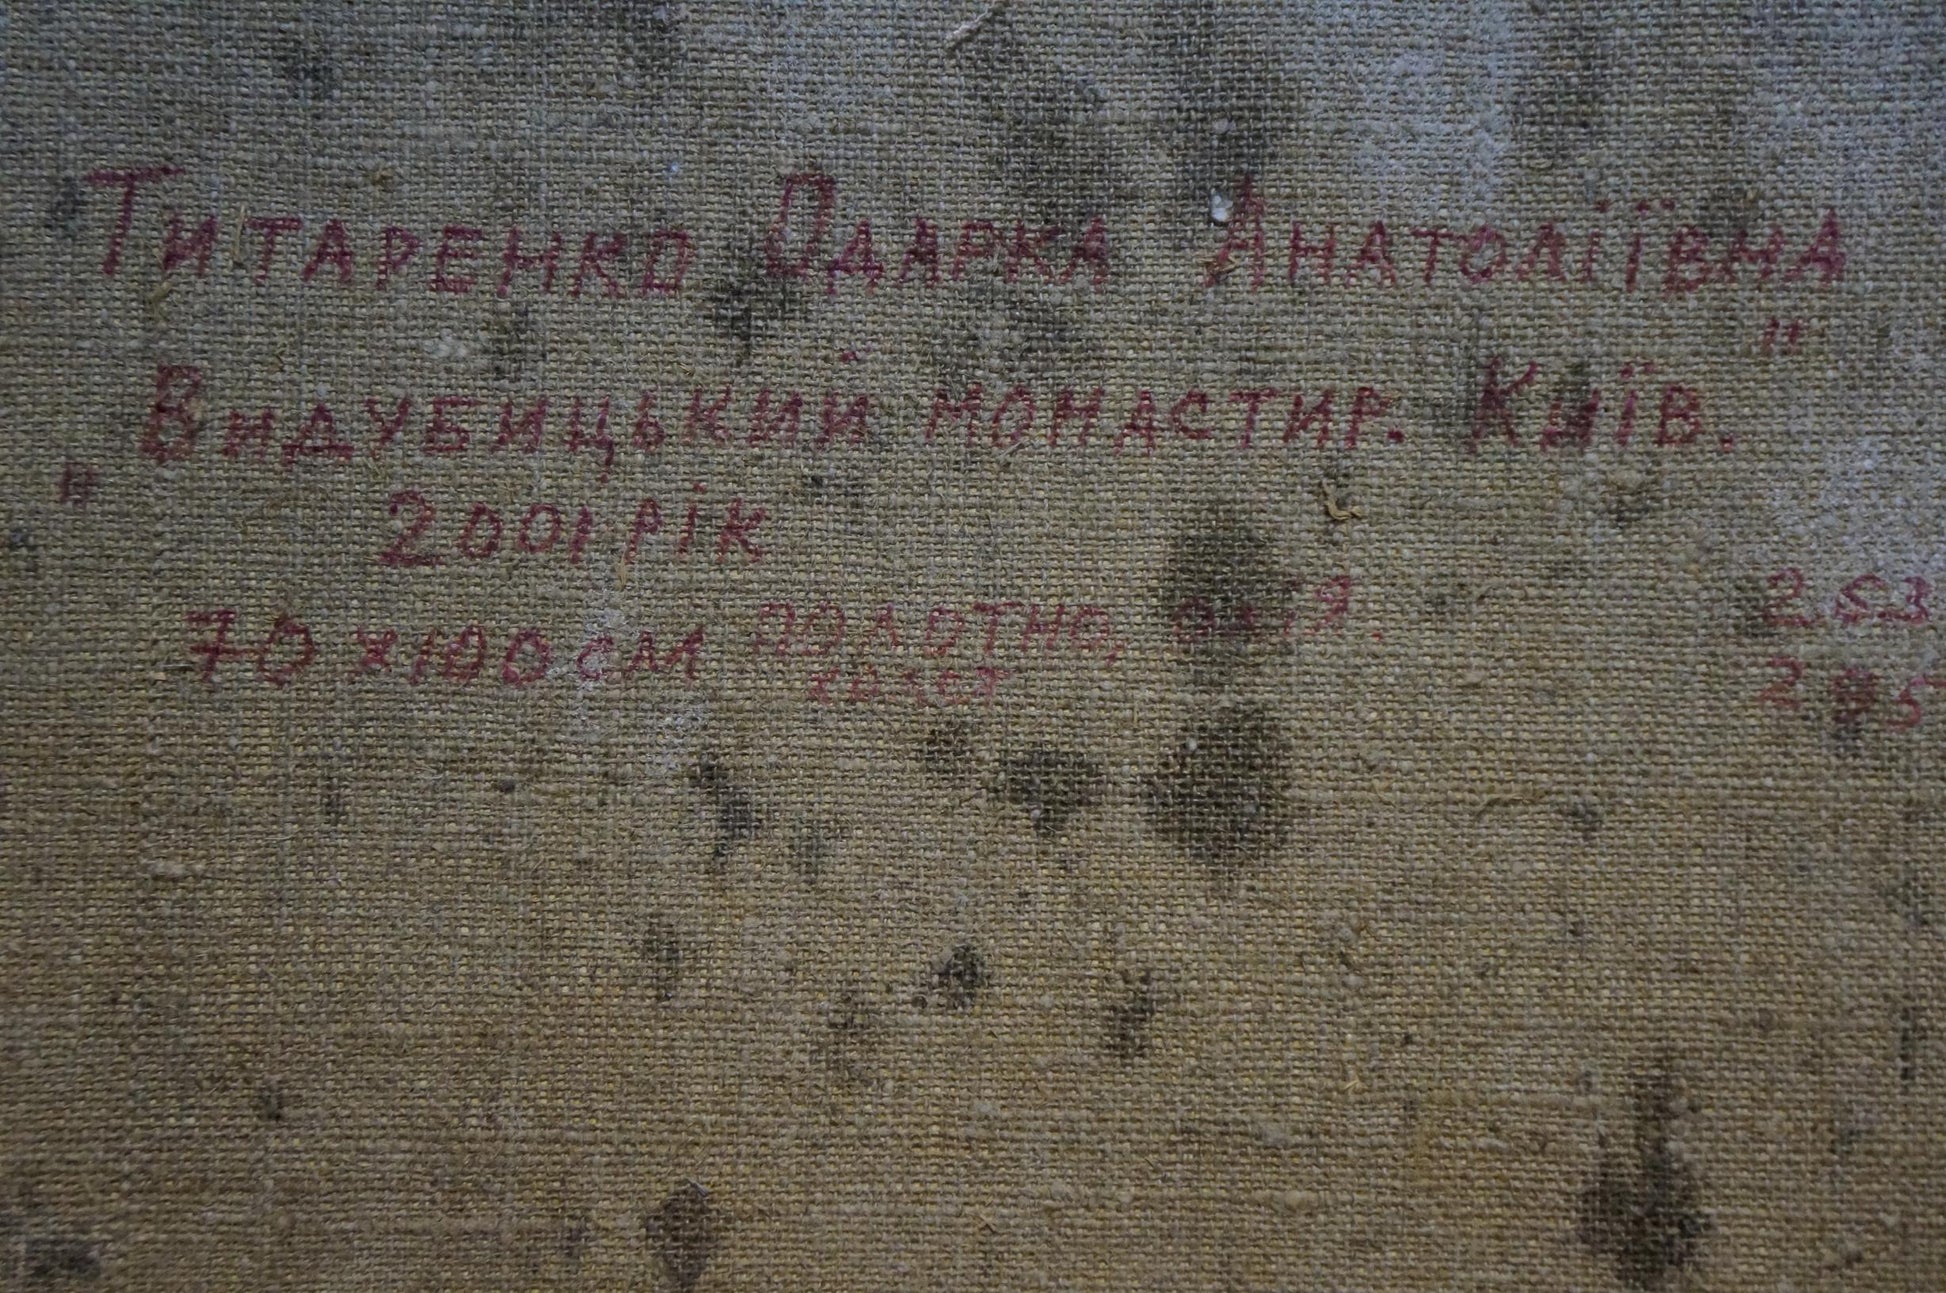 Титаренко Одарка Анатоліївна
„Видубицький монастир. Київ."
2001 рік
70 х 100 см полотно, олія.
холст
253